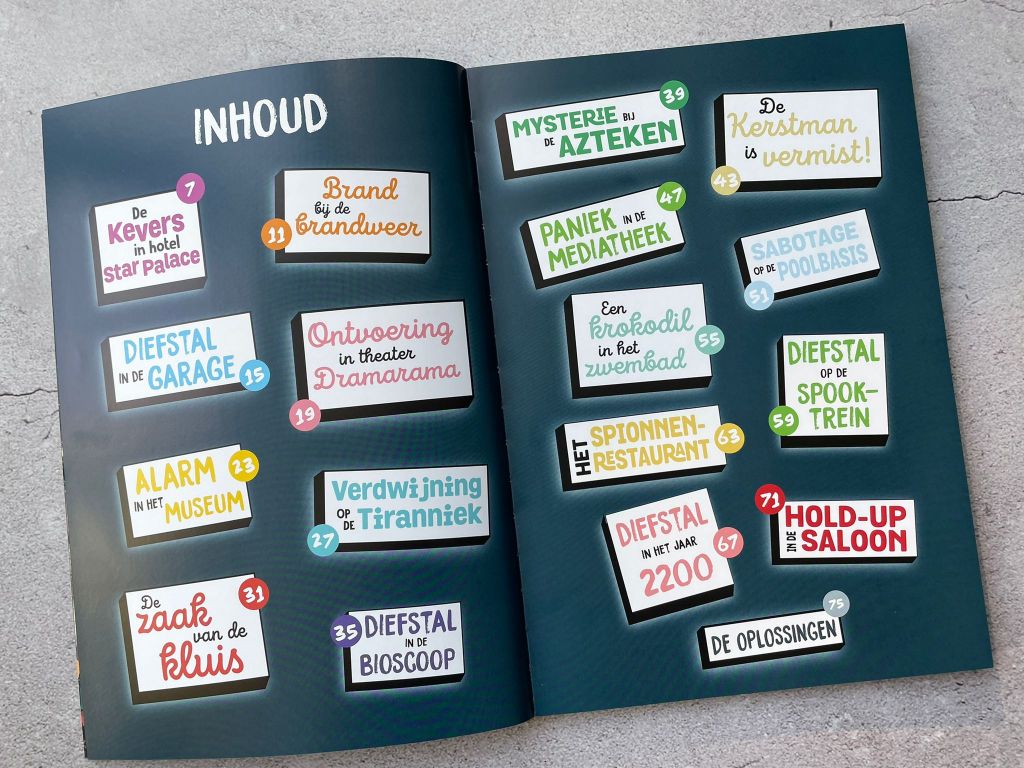 INHOUD
7
De
Kevers
in hotel
Star Palace
Brand
bij de
brandweer
11
DIEFSTAL
IN DE GARAGE
15
Ontvoering
in theater
Dramarama
19
ALARM
IN HET MUSEUM
23
Verdwijning
OP DE Tiranniek
27
De
zaak
van de
kluis
31
35
DIEFSTAL
IN DE
BIOSCOOP
39
MYSTERIE BIJ
DE AZTEKEN
De
Kerstman
is vermist!
43
47
PANIEK IN DE
MEDIATHEEK
SABOTAGE
OP DE POOLBASIS
51
Een
krokodil
in het
zwembad
55
DIEFSTAL
OP DE
SPOOK-
TREIN
59
HET SPIONNEN-
RESTAURANT
63
DIEFSTAL
IN HET JAAR
2200
67
71
HOLD-UP
IN DE SALOON
75
DE OPLOSSINGEN